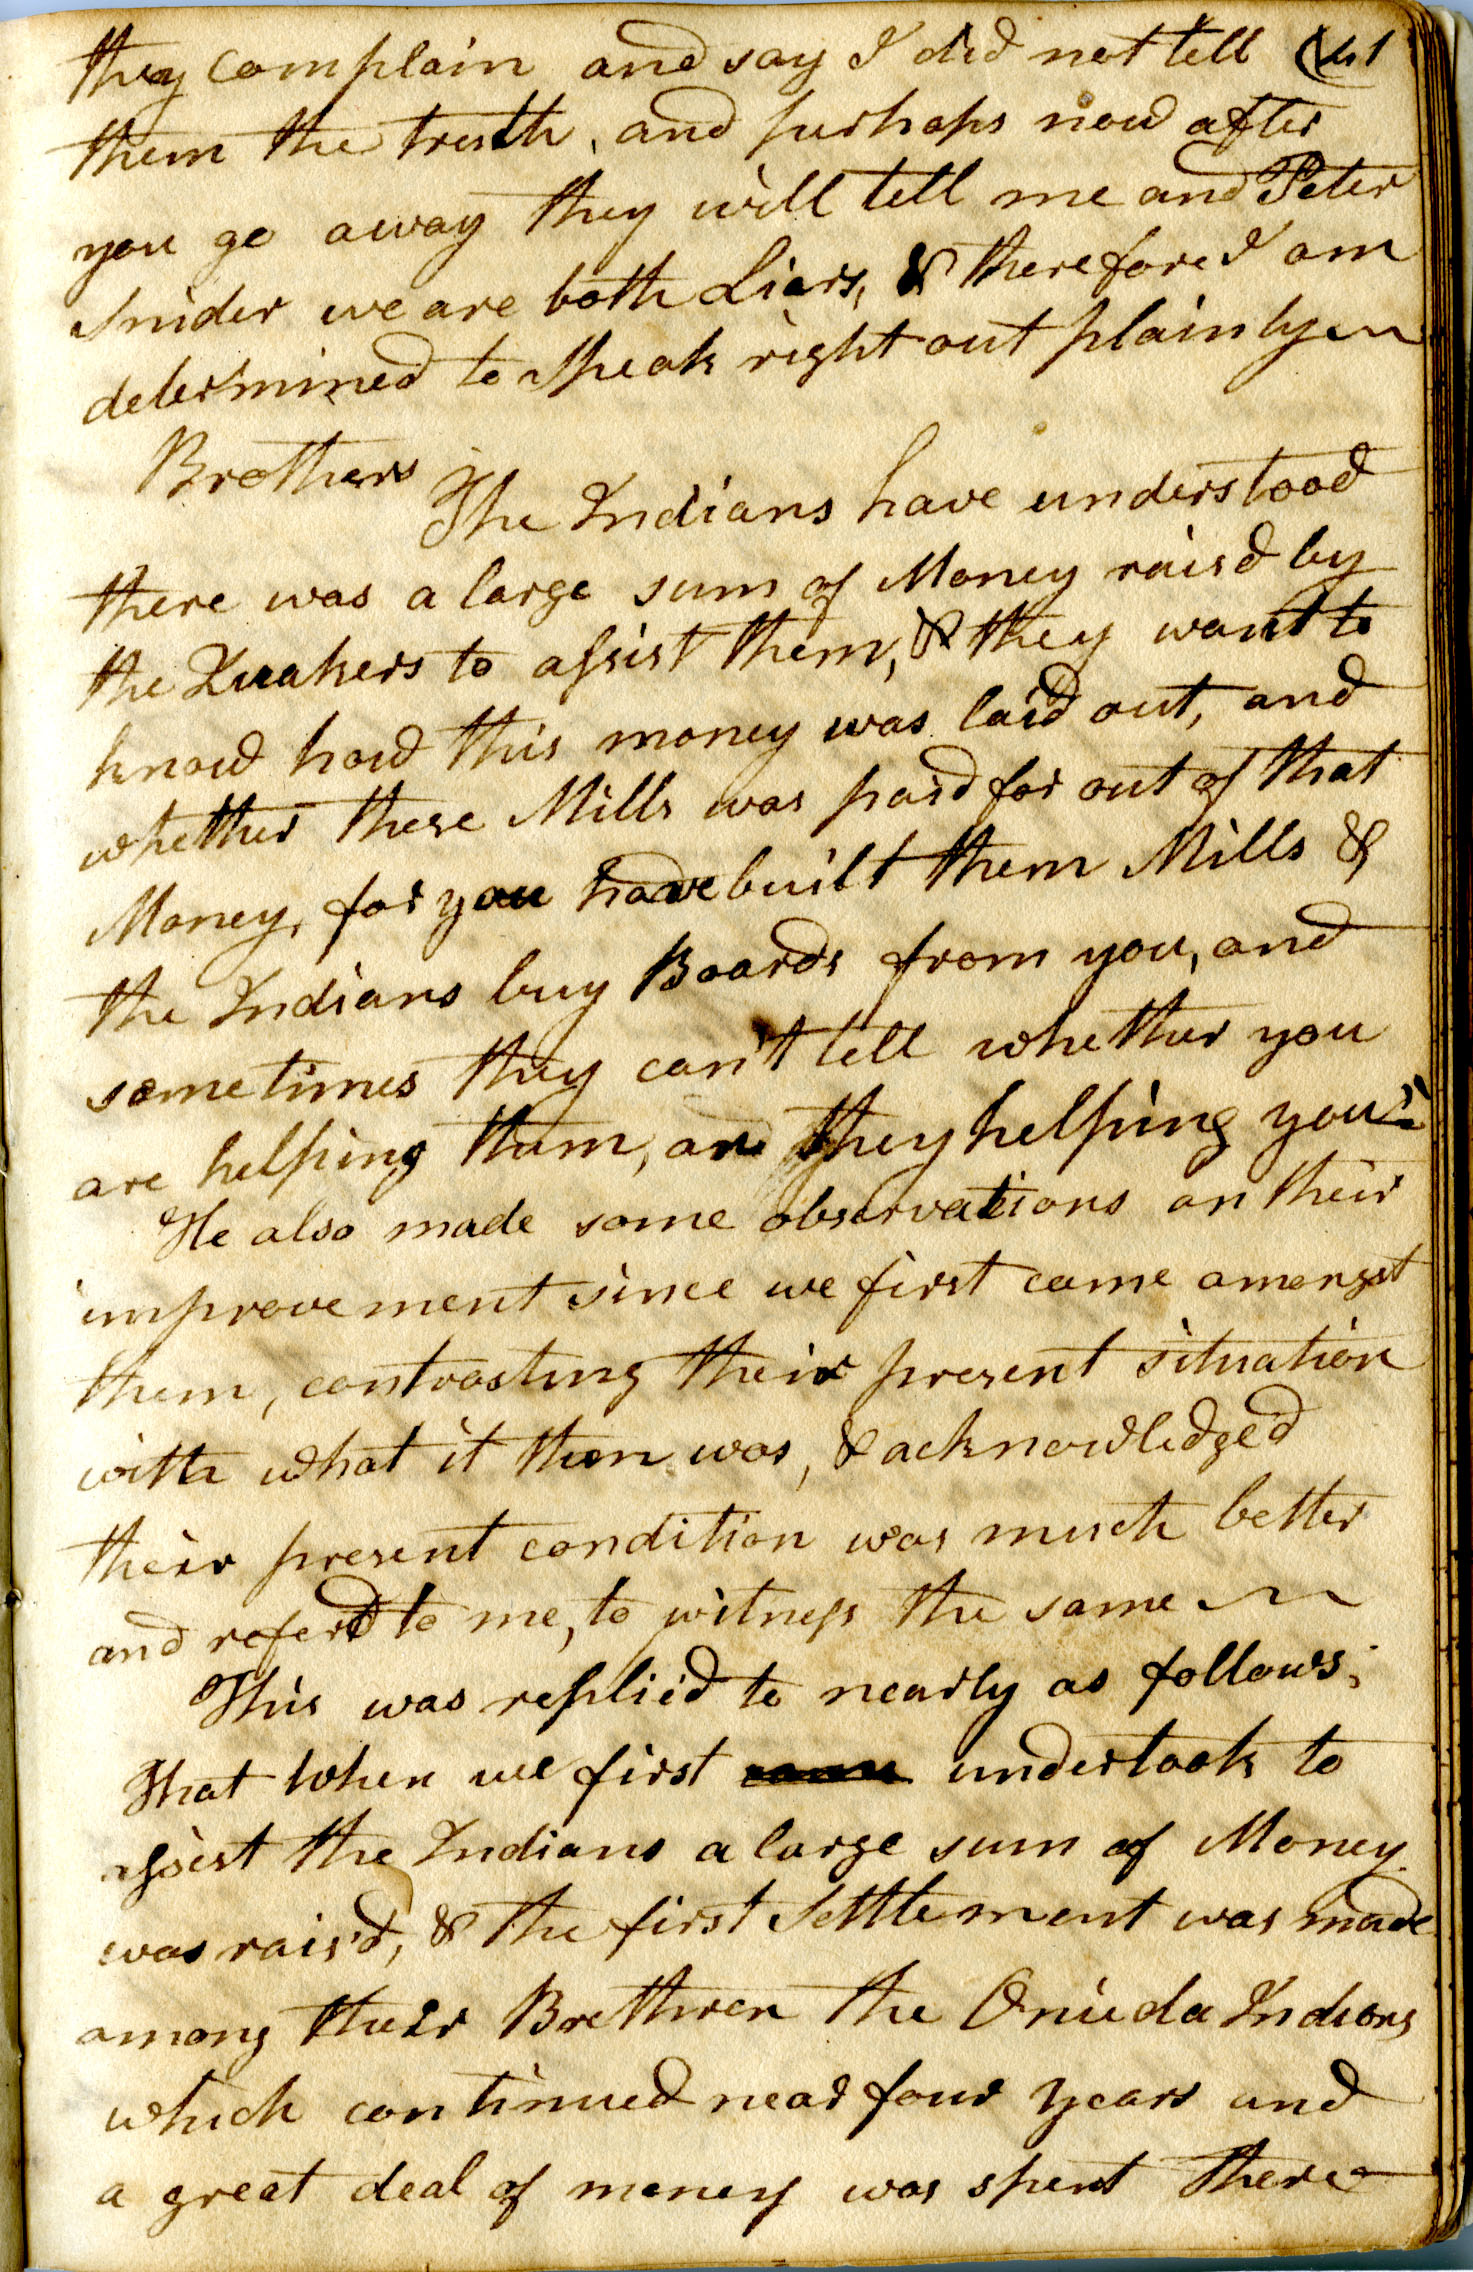 they complain and say I did not tell (41
them the truth, and perhaps now after
you go away they will tell me and Peter
Snider we are both Liars, & therefore I am
determined to speak right out plainly
Brothers
The Indians have understood
there was a large sum of Money rais'd by
the Quakers to assist them, & they want to
know how this money was laid out, and
whether these Mills was paid for out of that
Money, for you have built them Mills &
the Indians buy Boards from you, and
sometimes they can't tell whether you
are helping them, or they helping you"
He also made some observations on their
improvement since we first came amongst
them, contrasting their present situation
with what it then was, & acknowledged
their present condition was much better
and refer'd to me, to witness the same
This was replied to nearly as follows;
That when we first undertook to
assist the Indians a large sum of Money
was rais'd, & the first Settlement was made
among their Brethren the Onieda Indians
which continued near four years and
a great deal of money was spent there